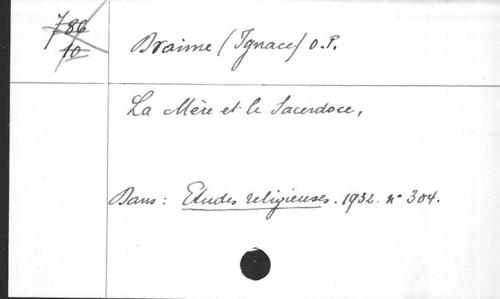 786
10
Braime (Ignace) O.P.
La Mère et le Sacerdoce,
Dans : Etudes religieuses. 1932. n° 304.